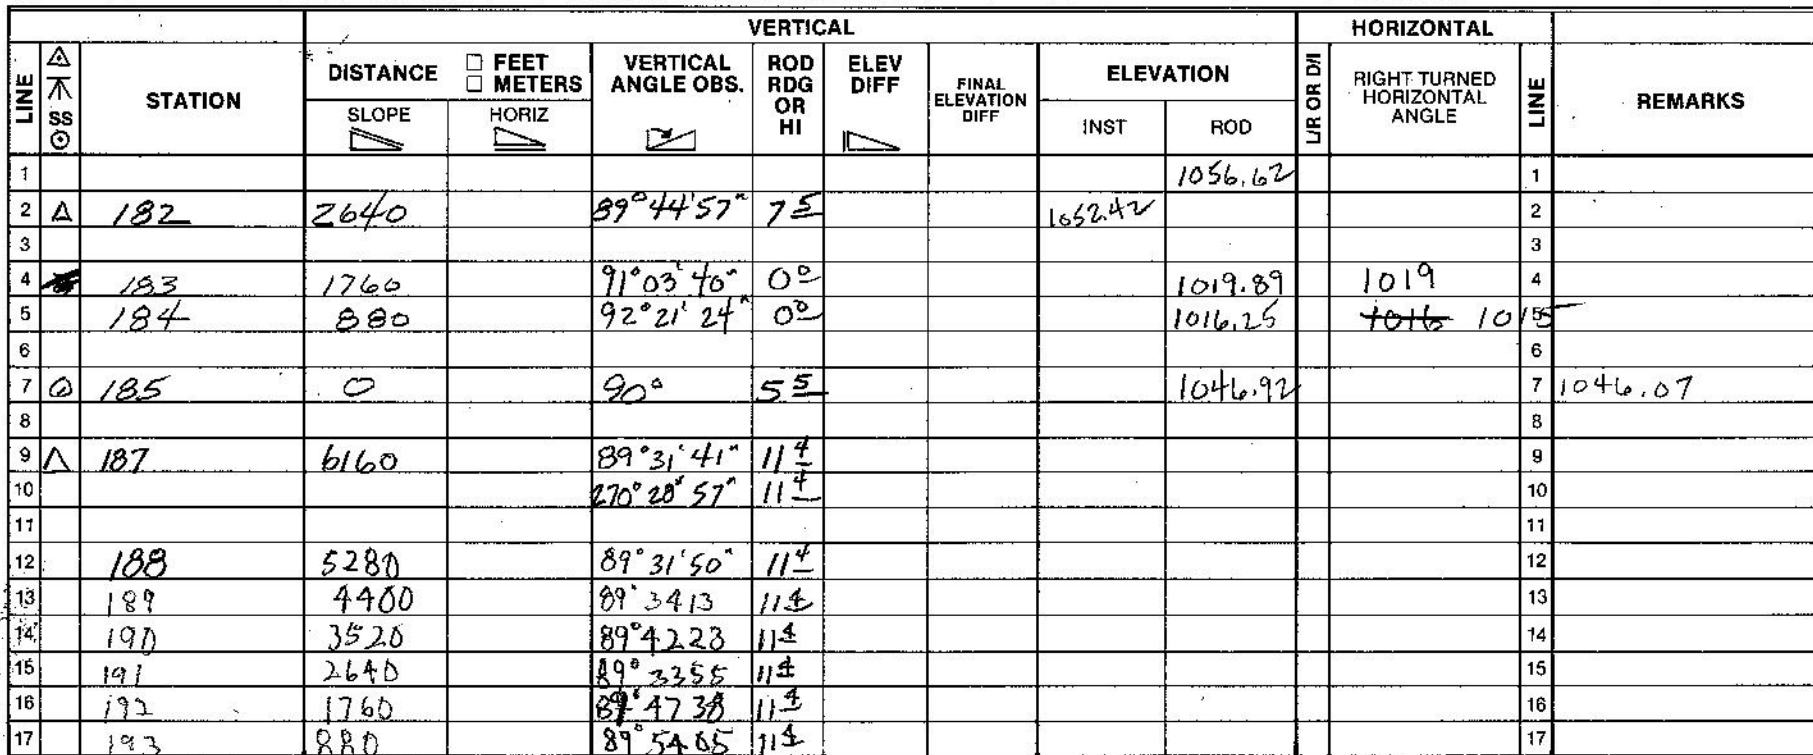 VERTICAL HORIZONTAL
LINE SS STATION DISTANCE □ FEET □ METERS SLOPE HORIZ VERTICAL ANGLE OBS. ROD RDG OR HI ELEV DIFF FINAL ELEVATION DIFF ELEVATION INST ROD L/R OR D/I RIGHT TURNED HORIZONTAL ANGLE LINE REMARKS
1 1056.62 1
2 △ 182 2640 89°44'57" 7 5 1052.42 2
3 3
4 183 1760 91°03'40" 0 0 1019.89 1019 4
5 184 880 92°21'24" 0 0 1016.25 1016 1015 5
6 6
7 185 0 90° 5 5 1046.92 7 1046.07
8 8
9 △ 187 6160 89°31'41" 11 4 9
10 270°28'57" 11 4 10
11 11
12 188 5280 89°31'50" 11 4 12
13 189 4400 89°3413 11 4 13
14 190 3520 89°4223 11 4 14
15 191 2640 89°3355 11 4 15
16 192 1760 4738 11 4 16
17 193 880 89°5405 11 4 17